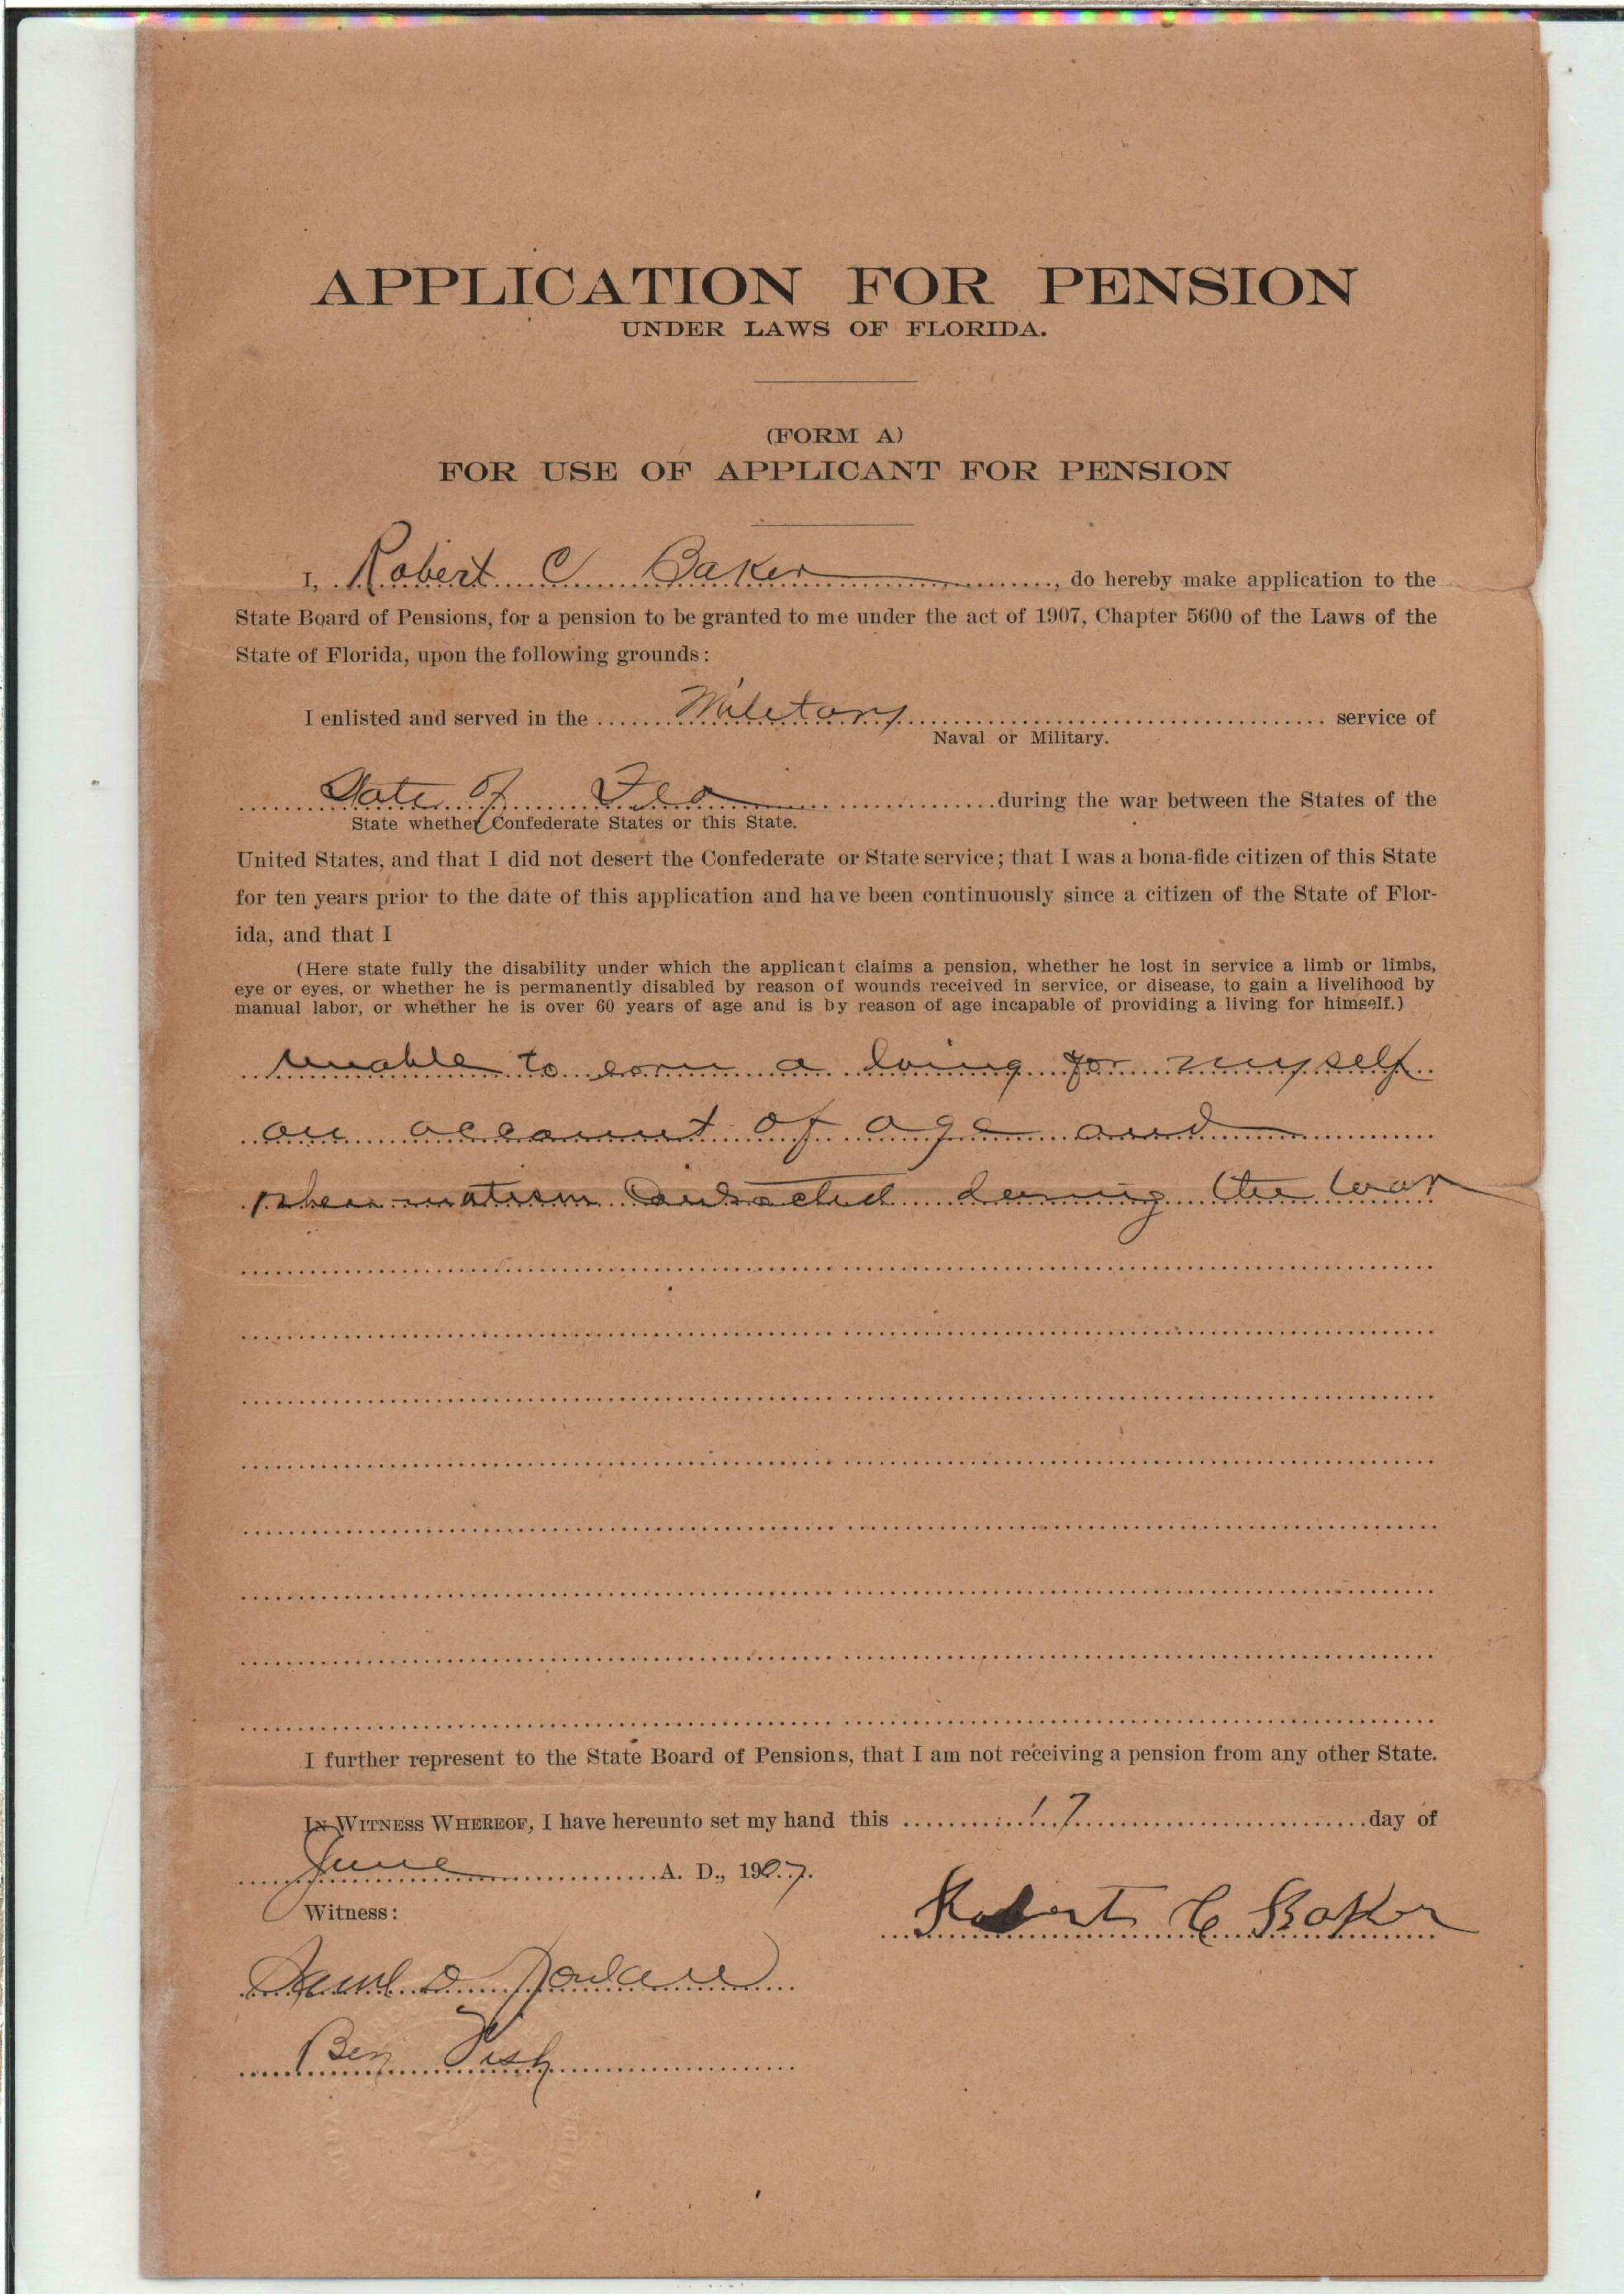 APPLICATION FOR PENSION
UNDER LAWS OF FLORIDA.
(FORM A)
FOR USE OF APPLICANT FOR PENSION
I, Robert C Baker, do hereby make application to the
State Board of Pensions, for a pension to be granted to me under the act of 1907, Chapter 5600 of the Laws of the
State of Florida, upon the following grounds:
I enlisted and served in the Miletary service of
Naval or Military.
State of Fla during the war between the States of the
State whether Confederate States or this State.
United States, and that I did not desert the Confederate or State service; that I was a bona-fide citizen of this State
for ten years prior to the date of this application and have been continuously since a citizen of the State of Flor-
ida, and that I
(Here state fully the disability under which the applicant claims a pension, whether he lost in service a limb or limbs,
eye or eyes, or whether he is permanently disabled by reason of wounds received in service, or disease, to gain a livelihood by
manual labor, or whether he is over 60 years of age and is by reason of age incapable of providing a living for himself.)
unable to earn a living for myself
on account of age and
rheumatism contracted during the war
I further represent to the State Board of Pensions, that I am not receiving a pension from any other State.
IN WITNESS WHEREOF, I have hereunto set my hand this 17 day of
June A. D., 1907.
Witness:
Robert C Baker
Saml D
Ben